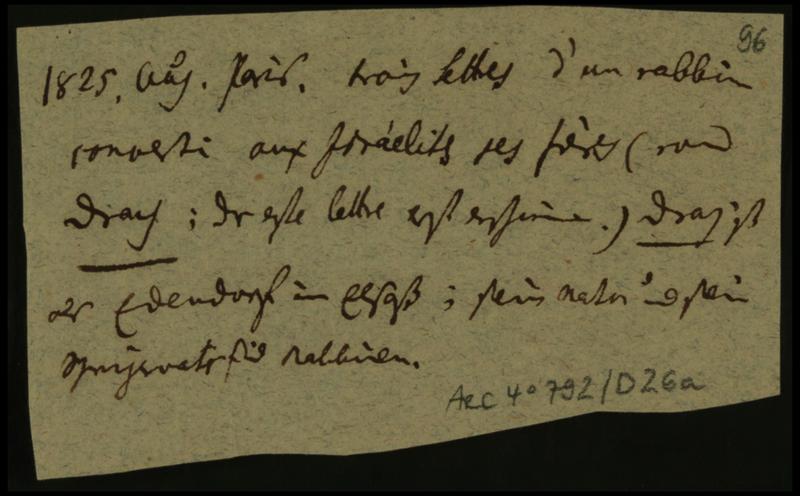 96
1825. Aug. Paris. trois lettres d'un rabbin
converti aux Israélites ses frères (von
Drach; die erste lettre erst erschienen.) Drach ist
aus Edendorf im Elsaß; sein Vater und sein
Schwiegervater sind Rabbinen.
Acc 4° 792/D26a